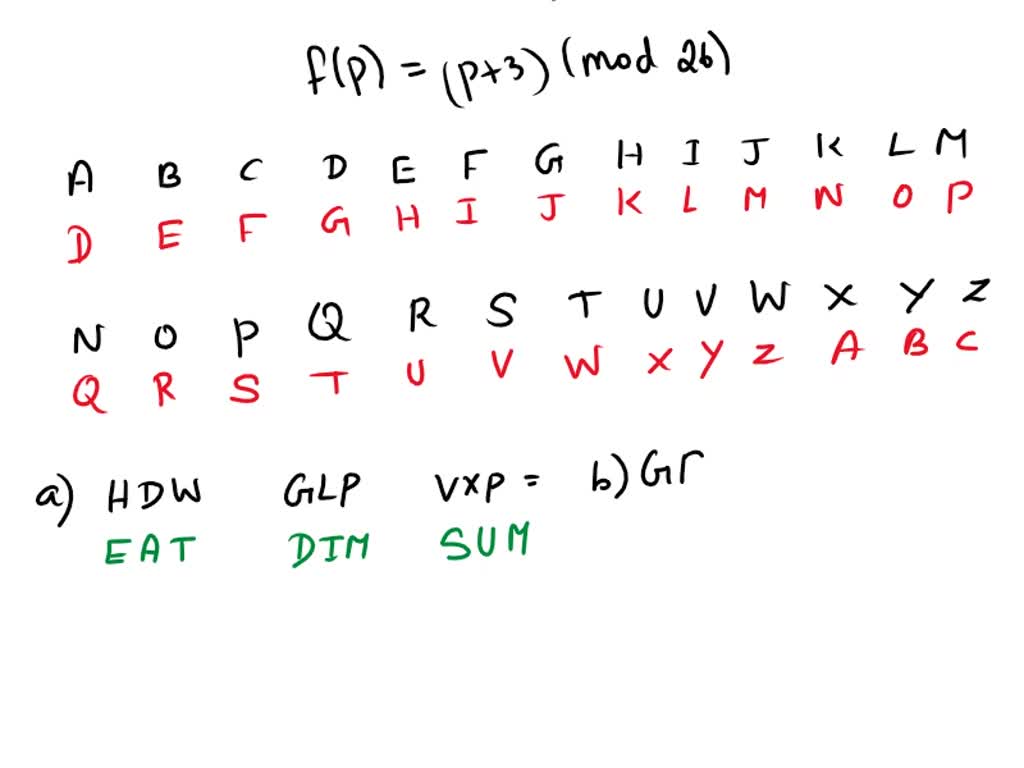 f(p) = (p+3) (mod 26)
A B C D E F G H I J K L M
D E F G H I J K L M N O P
N O P Q R S T U V W X Y Z
Q R S T U V W X Y Z A B C
a) HDW GLP VXP = b) G
EAT DIM SUM